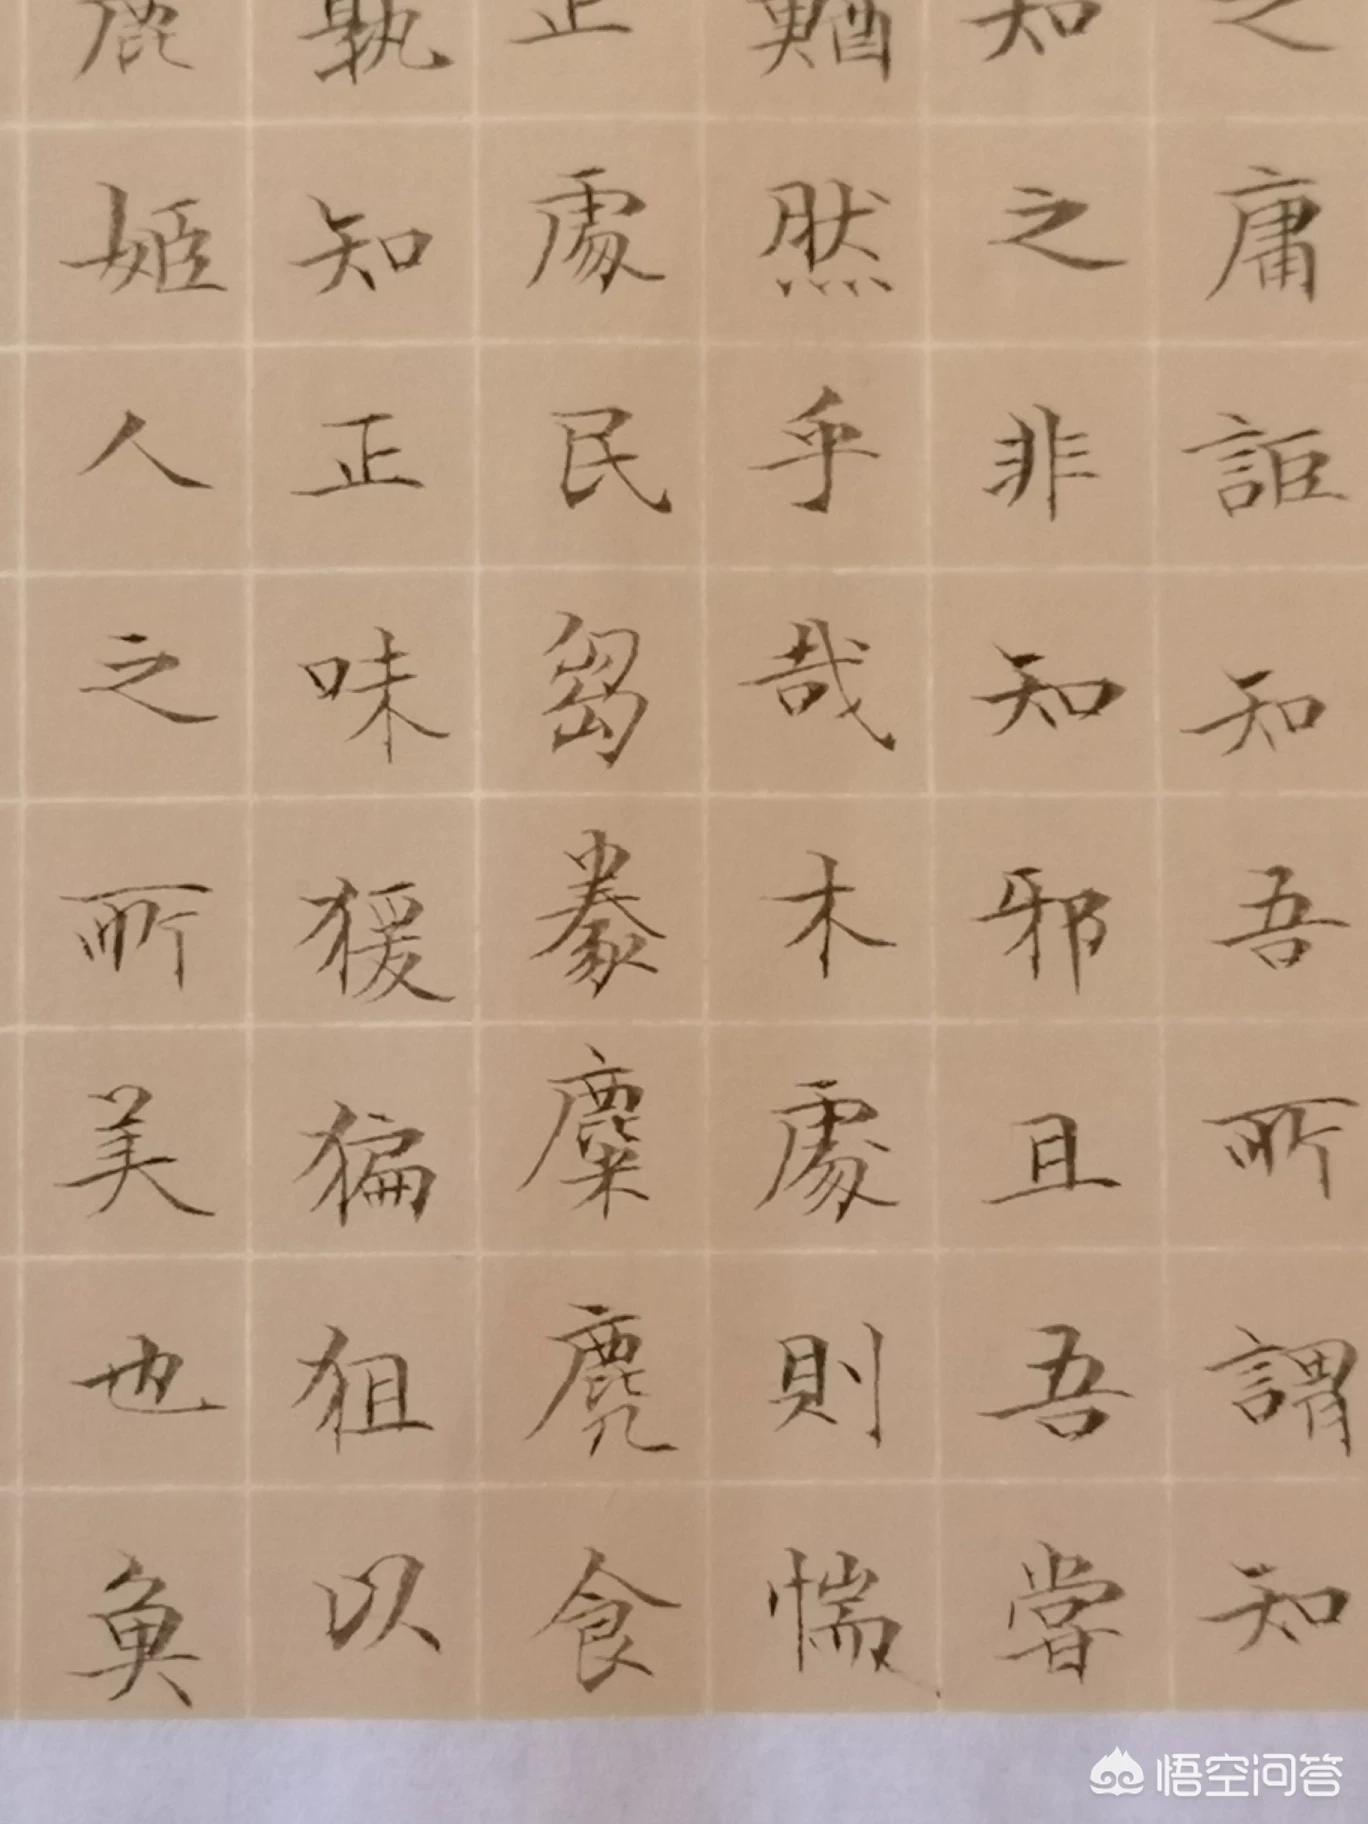 之庸詎知吾所謂知
知之非知邪且吾嘗
鰌然乎哉木處則惴
正處民芻豢麋麂食
孰知正味猨猵狙以
鹿姬人之所美也魚
悟空问答